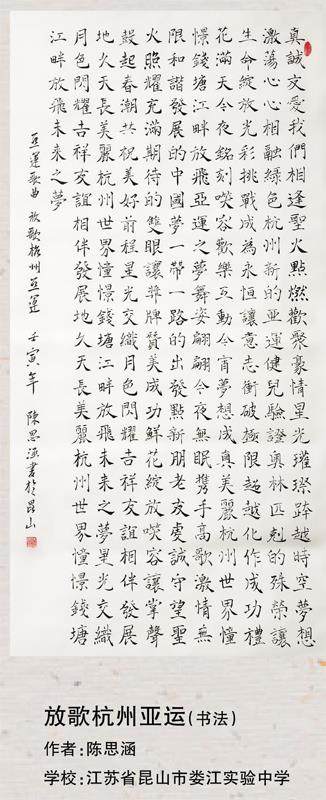 真誠友愛我們相逢聖火點燃歡聚豪情星光璀璨跨越時空夢想
激蕩心心相融綠色杭州新的亞運健兒驗證奧林匹剋的殊榮讓
生命綻放光彩挑戰成為永恒讓意志衝破極限超越化作成功禮
花滿天今夜銘刻笑容歡樂互動今宵夢想成真美麗杭州世界憧
憬錢塘江畔放飛亞運之夢舞姿翩翩今夜無眠携手高歌激情無
限和諧發展的中國夢一帶一路的出發點新朋老友虔誠守望聖
火照耀充滿期待的雙眼讓獎牌贊美成功鮮花綻放笑容讓掌聲
鼓起春潮共祝美好前程星光交織月色閃耀吉祥友誼相伴發展
地久天長美麗杭州世界憧憬錢塘江畔放飛未來之夢星光交織
月色閃耀吉祥友誼相伴發展地久天長美麗杭州世界憧憬錢塘
江畔放飛未來之夢
亞運歌曲 放歌杭州亞運 壬寅年 陳思涵書於昆山
放歌杭州亚运(书法)
作者:陈思涵
学校:江苏省昆山市娄江实验中学